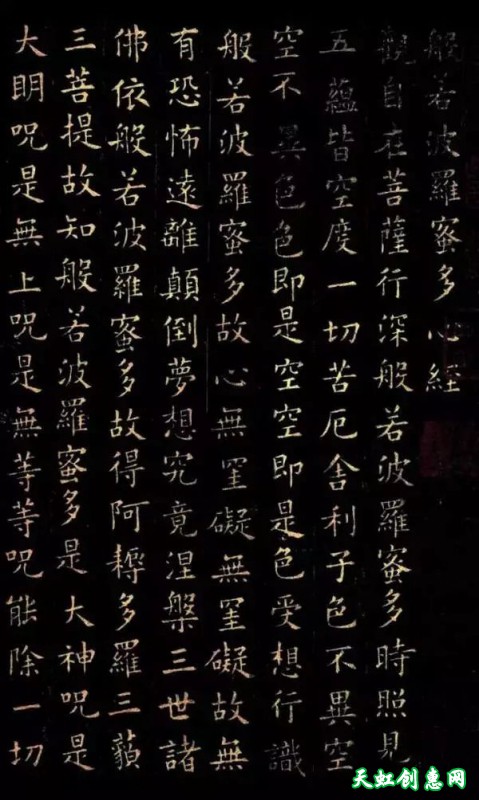 般若波羅蜜多心経
觀自在菩薩行深般若波羅蜜多時照見
五蘊皆空度一切苦厄舍利子色不異空
空不異色色即是空空即是色受想行識
般若波羅蜜多故心無罣礙無罣礙故無
有恐怖遠離顛倒夢想究竟涅槃三世諸
佛依般若波羅蜜多故得阿耨多羅三藐
三菩提故知般若波羅蜜多是大神呪是
大明呪是無上呪是無等等呪能除一切
天虹创惠网